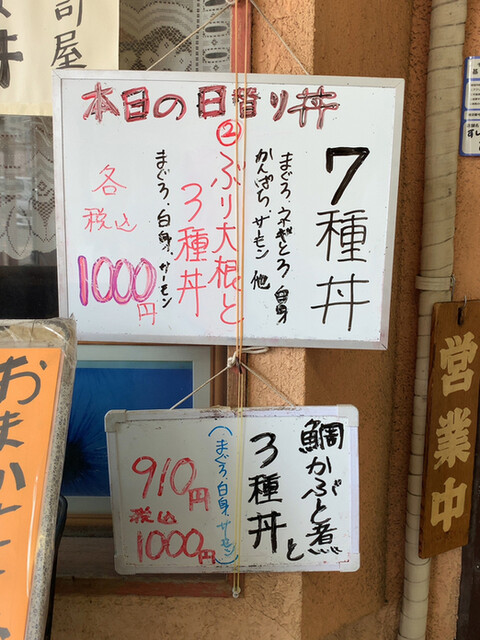 本日の日替り丼
7種丼
まぐろ、ネギとろ、白身
かんぱち、サーモン 他
②ぶり大根と
3種丼
まぐろ、白身、サーモン
各
税込
1000円
鯛かぶと煮と
3種丼
(まぐろ、白身、サーモン)
910円
税込
1000円
営業中
おまか
司屋
丼